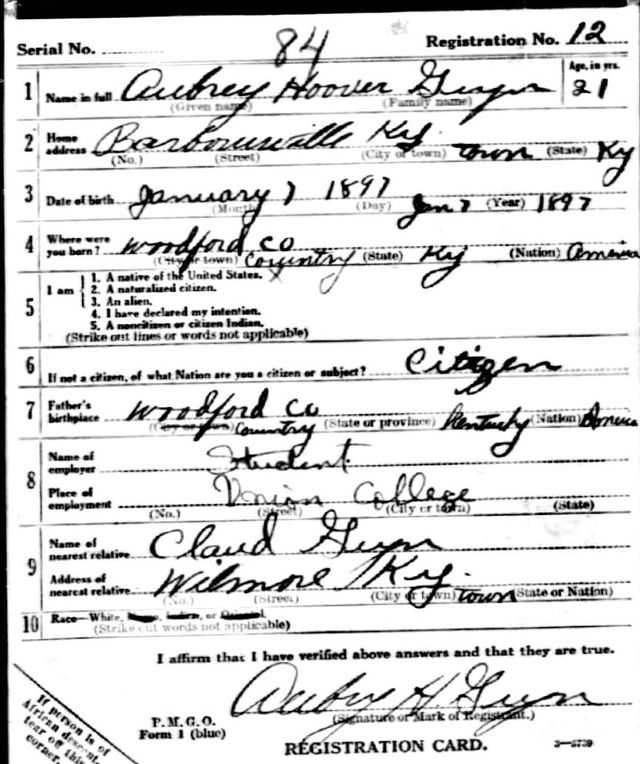 Serial No. 84 Registration No. 12
1 Name in full Aubrey Hoover Guyn Age, in yrs. 21
(Given name) (Family name)
2 Home address Barbourville Ky. town Ky
(No.) (Street) (City or town) (State)
3 Date of birth January 7 1897 Jan 7 1897
(Month) (Day) (Year)
4 Where were you born? Woodford Co Country Ky America
(City or town) (State) (Nation)
5 I am
1. A native of the United States. X
2. A naturalized citizen.
3. An alien.
4. I have declared my intention.
5. A noncitizen or citizen Indian.
(Strike out lines or words not applicable)
6 If not a citizen, of what Nation are you a citizen or subject? Citizen
7 Father's birthplace Woodford Co Country Kentucky America
(City or town) (State or province) (Nation)
8 Name of employer Student
Place of employment Union College
(No.) (Street) (City or town) (State)
9 Name of nearest relative Claud Guyn
Address of nearest relative Wilmore Ky. town
(No.) (Street) (City or town) (State or Nation)
10 Race—White, Negro, Indian, or Oriental.
(Strike out words not applicable)
I affirm that I have verified above answers and that they are true.
Aubrey H. Guyn
(Signature or Mark of Registrant.)
P. M. G. O.
Form 1 (blue)
REGISTRATION CARD. 3—5739
If person is of
African descent,
tear off this
corner.